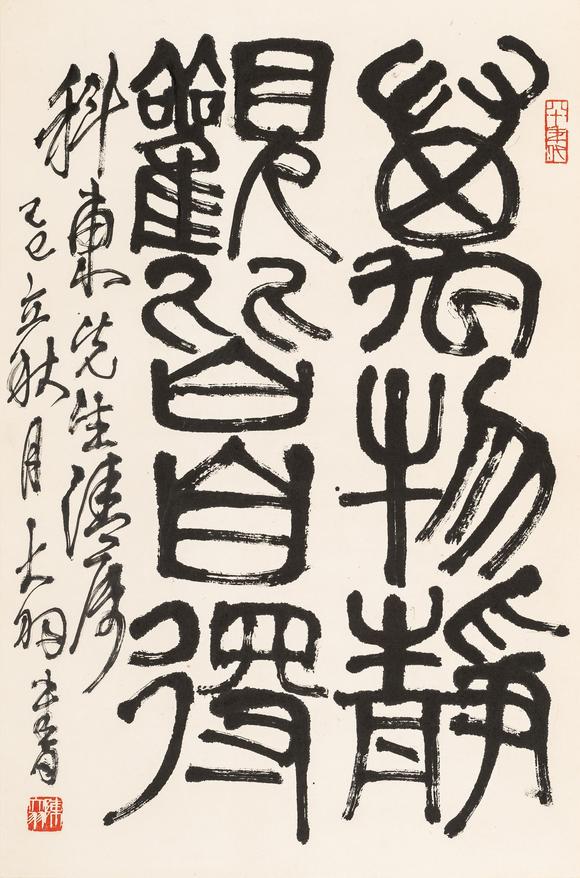 萬物靜
觀皆自得
科東先生清屬
己巳立秋月大羽書